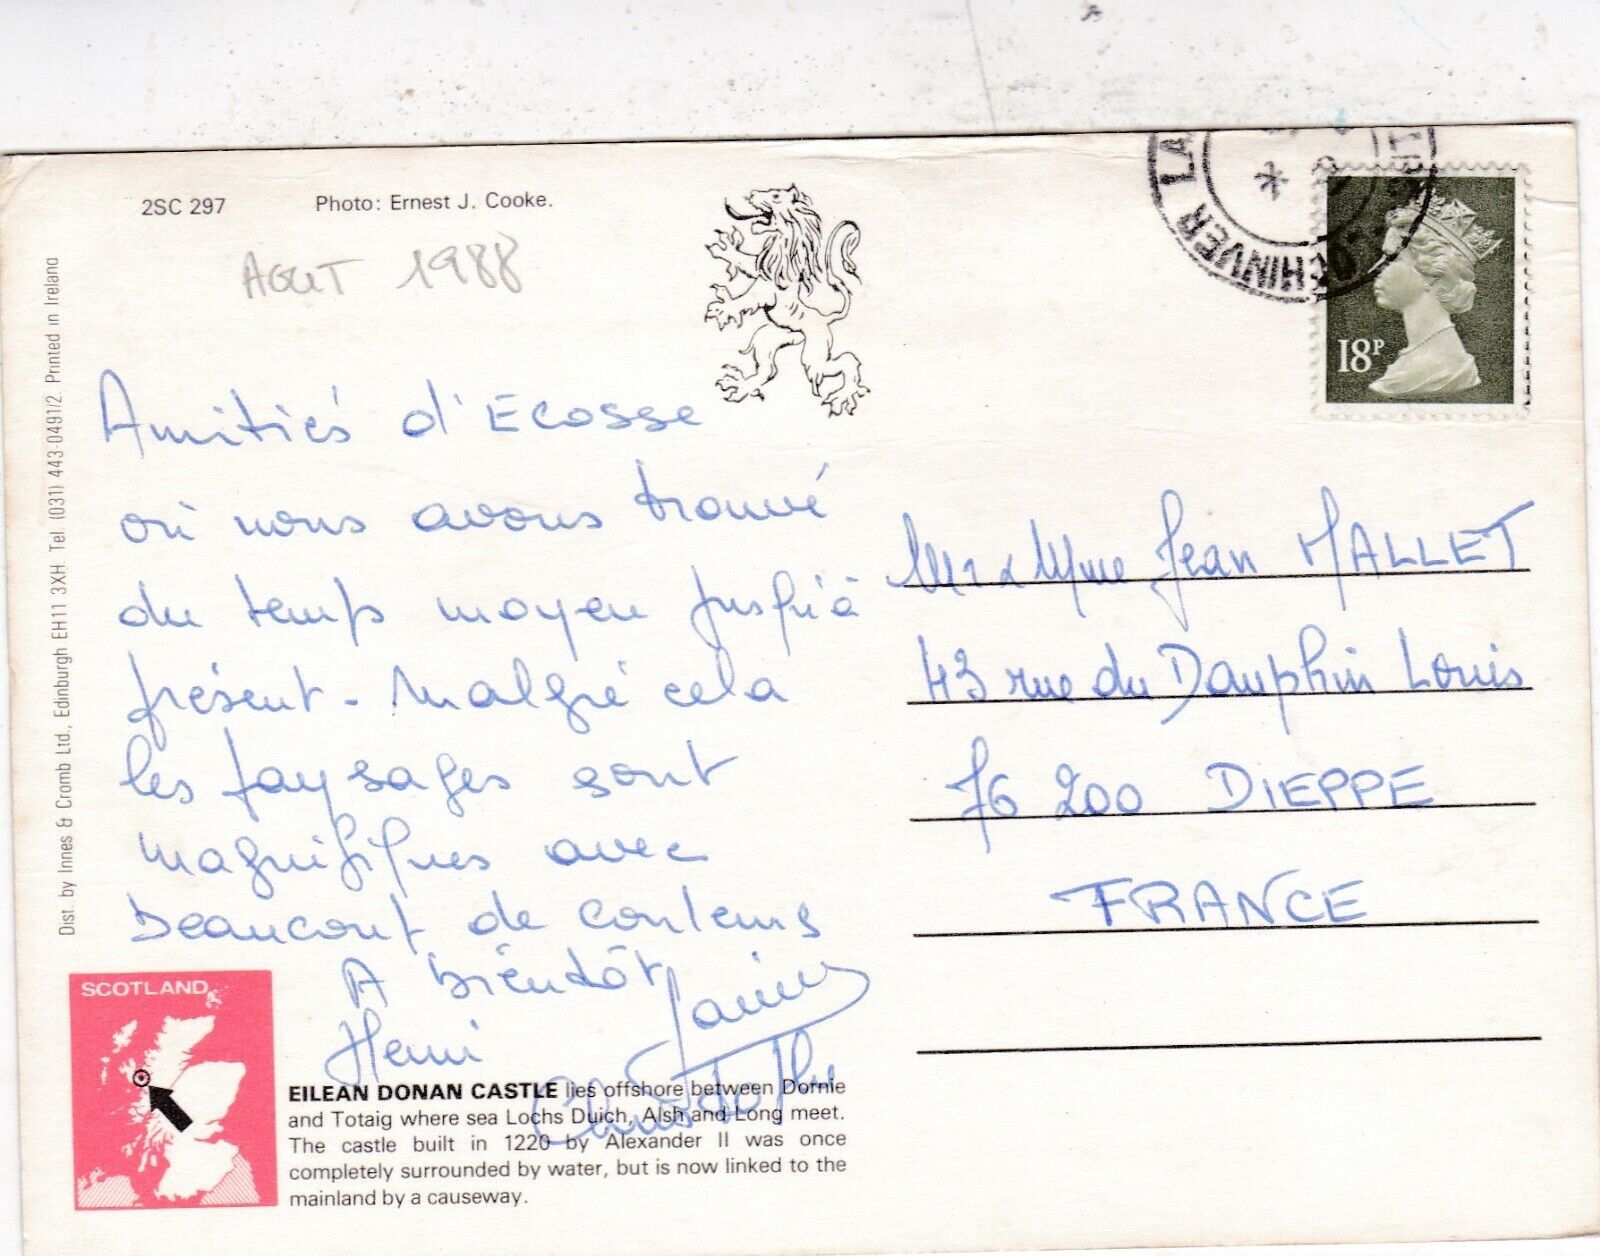 2SC 297 Photo: Ernest J. Cooke.
AOUT 1988
Dist. by Innes & Cromb Ltd., Edinburgh EH11 3XH Tel. (031) 443-0491/2 Printed in Ireland
Amitiés d'Ecosse
où nous avons trouvé
du temps moyen jusqu'à
présent - Malgré cela
les paysages sont
magnifiques avec
beaucoup de couleurs
A bientôt
Henri
Christophe
HINVER LA
18P
Mr & Mme Jean MALLET
43 rue du Dauphin Louis
76 200 DIEPPE
FRANCE
SCOTLAND
EILEAN DONAN CASTLE lies offshore between Dornie
and Totaig where sea Lochs Duich, Alsh and Long meet.
The castle built in 1220 by Alexander II was once
completely surrounded by water, but is now linked to the
mainland by a causeway.